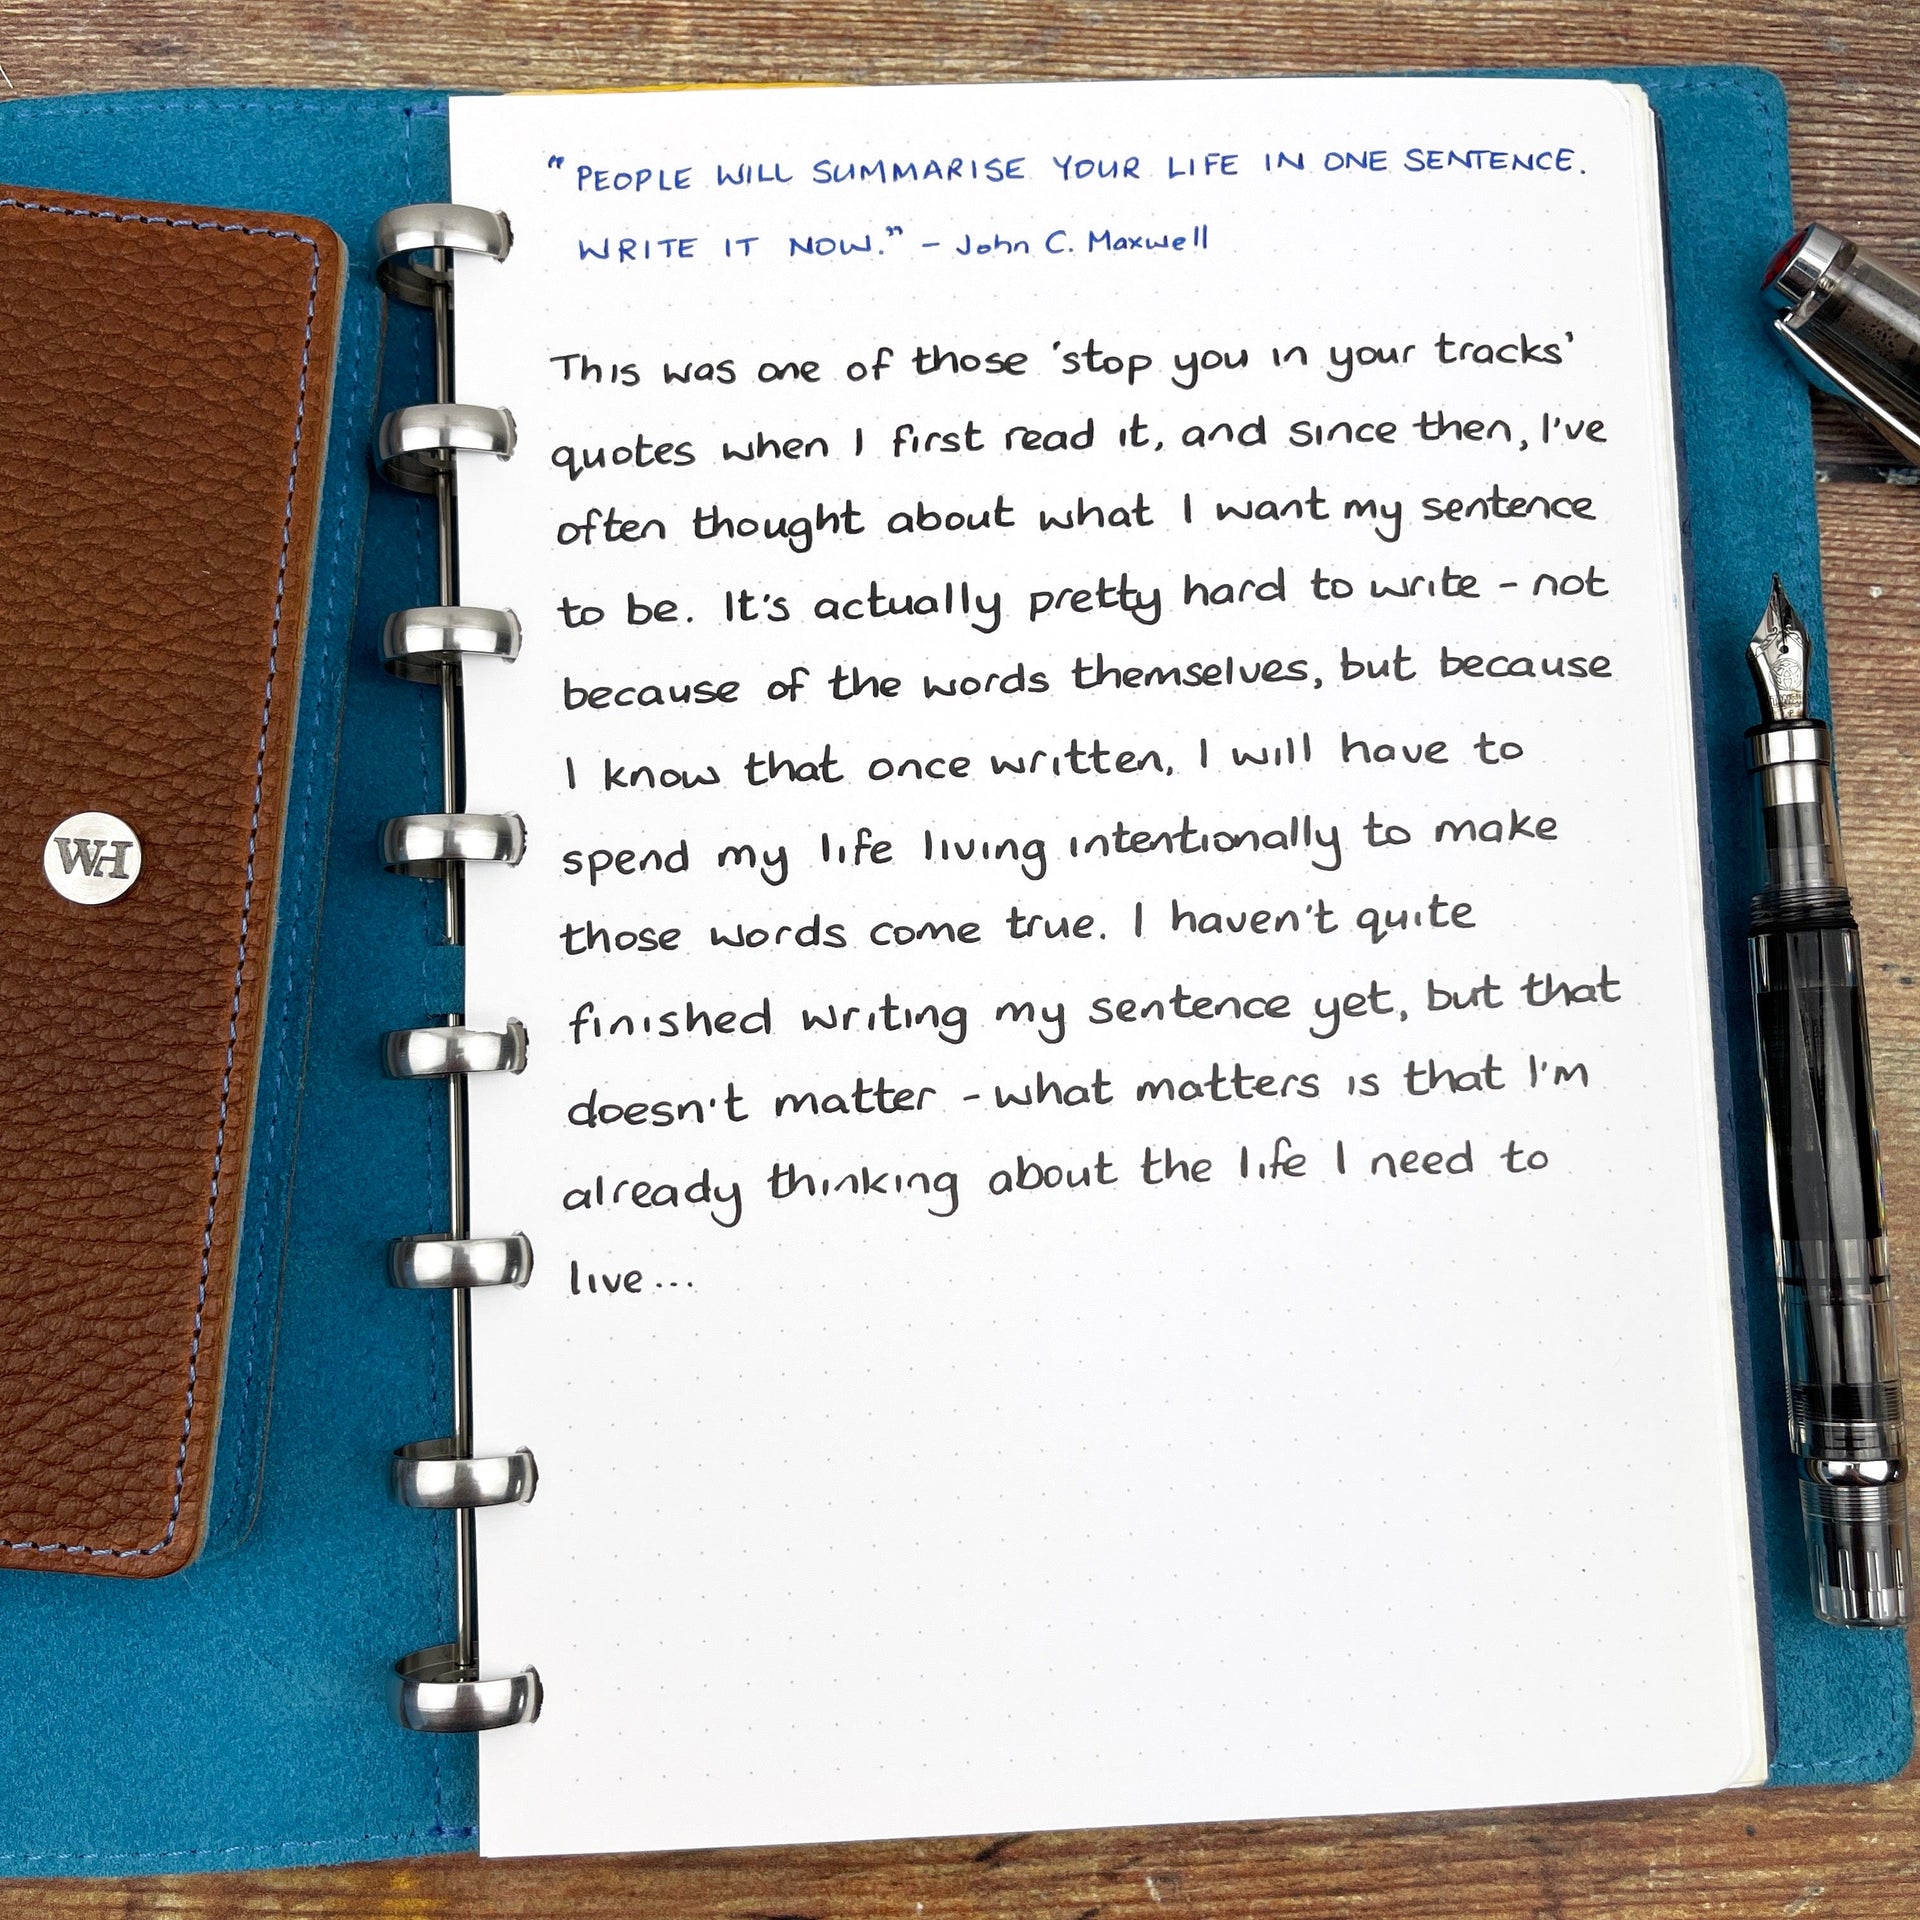 WH
“PEOPLE WILL SUMMARISE YOUR LIFE IN ONE SENTENCE.
WRITE IT NOW.” – John C. Maxwell
This was one of those ‘stop you in your tracks’
quotes when I first read it, and since then, I've
often thought about what I want my sentence
to be. It's actually pretty hard to write – not
because of the words themselves, but because
I know that once written, I will have to
spend my life living intentionally to make
those words come true. I haven't quite
finished writing my sentence yet, but that
doesn't matter – what matters is that I'm
already thinking about the life I need to
live...